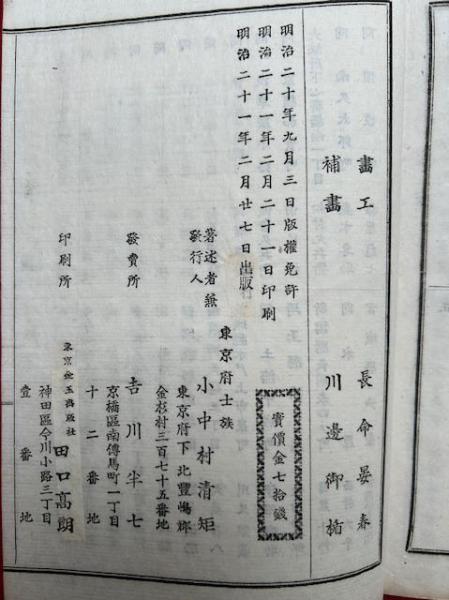 畫工　長命晏春
補畫　川邊御楯
明治二十年九月三日版權免許
明治二十一年二月二十一日印刷
明治二十一年二月廿七日出版
實價金七拾錢
著述者兼
發行人
東京府士族
小中村清矩
東京府下北豐嶋郡
金杉村三百七十五番地
發賣所
吉川半七
京橋區南傳馬町一丁目
十二番地
印刷所
東京金玉出版社
田口高朗
神田區今川小路三丁目
壹番地